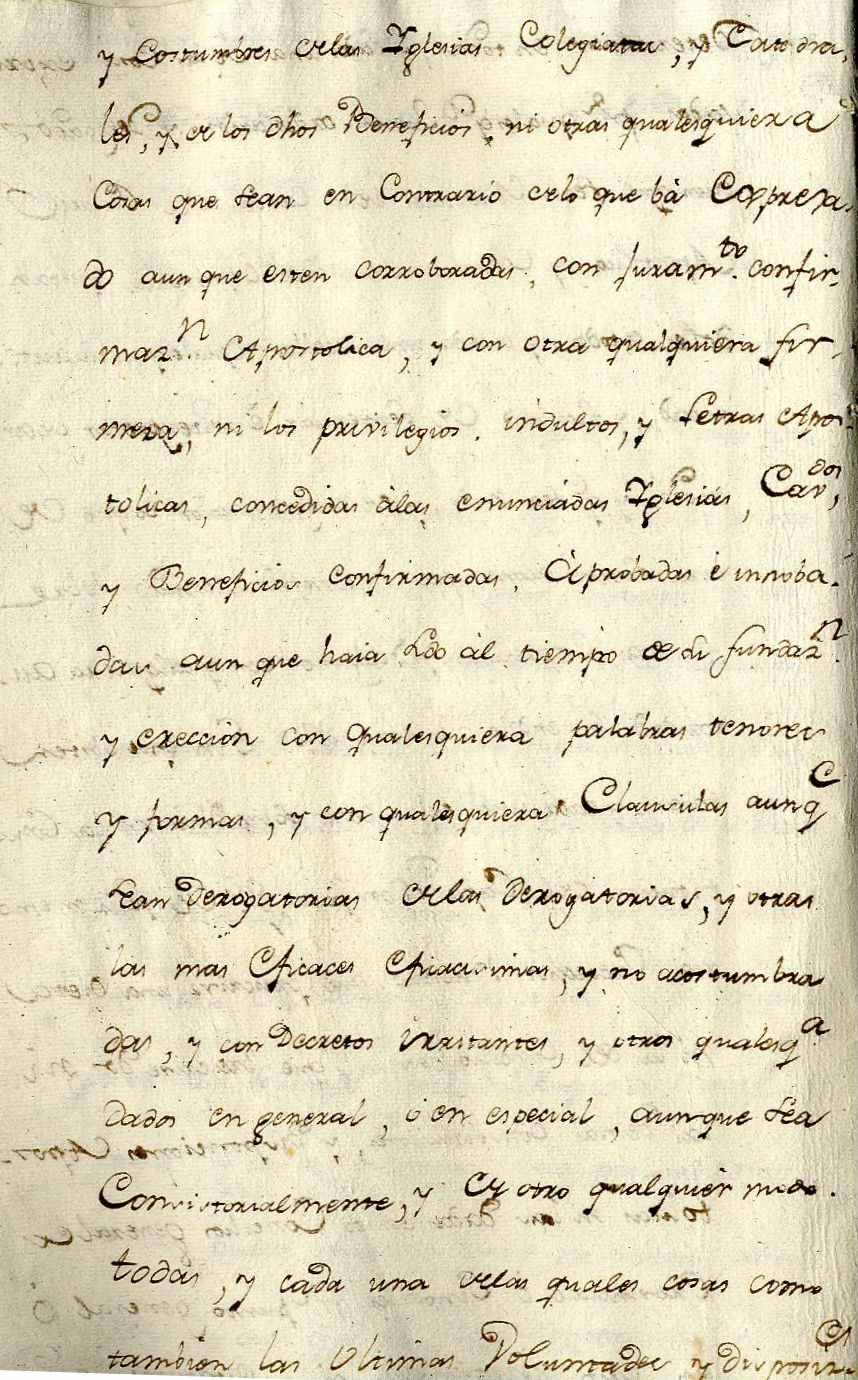 y Costumbres delas Yglesias Colegiatas, y Catedra-
les, y de los dhos Beneficios, ni otras qualesquiera
Cosas que sean en Contrario delo que bà Expresa-
do aunque esten corroboradas, con Juramto. confir-
mazn. Apostolica, y con otra qualquiera fir-
meza, ni los privilegios, indultos, y Letras Apos-
tolicas, concedidas àlas enunciadas Yglesias, Cavdos,
y Beneficios confirmadas, Aprobadas è innoba-
das aun que haia sido àl tiempo de su fundazn.
y ereccion con qualesquiera palabras tenores
y formas, y con qualesquiera Clausulas aunqe
sean Derogatorias delas Derogatorias, y otras
las mas eficaces eficacisimas, y no acostumbra
das, y con Decretos irritantes, y otros qualesqa
dados en general, ò en especial, aunque sea
Consistorialmente, y de otro qualquier modo.
todas, y cada una delas quales cosas como
tambien las Ultimas Voluntades, y disposiz